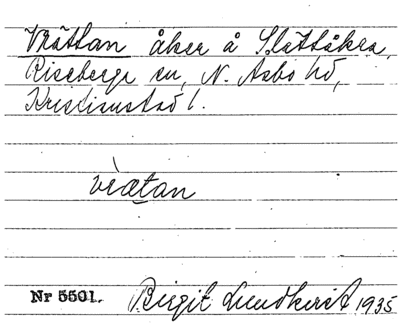 Vrättan åker å Slättåkra,
Riseberga sn, N. Åsbo hd,
Kristianstad l.
vrætan
Nr 5501. Birgit Lundkvist 1935